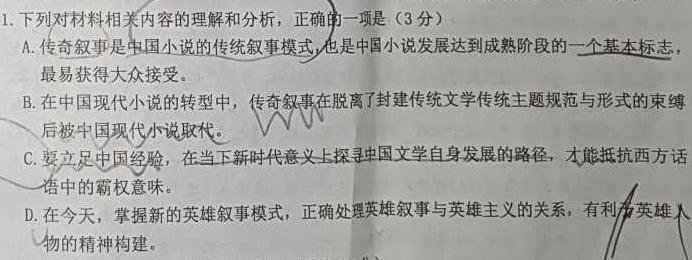 1. 下列对材料相关内容的理解和分析，正确的一项是（3 分）
A. 传奇叙事是中国小说的传统叙事模式，也是中国小说发展达到成熟阶段的一个基本标志，
最易获得大众接受。
B. 在中国现代小说的转型中，传奇叙事在脱离了封建传统文学传统主题规范与形式的束缚
后被中国现代小说取代。
C. 要立足中国经验，在当下新时代意义上探寻中国文学自身发展的路径，才能抵抗西方话
语中的霸权意味。
D. 在今天，掌握新的英雄叙事模式，正确处理英雄叙事与英雄主义的关系，有利于英雄人
物的精神构建。